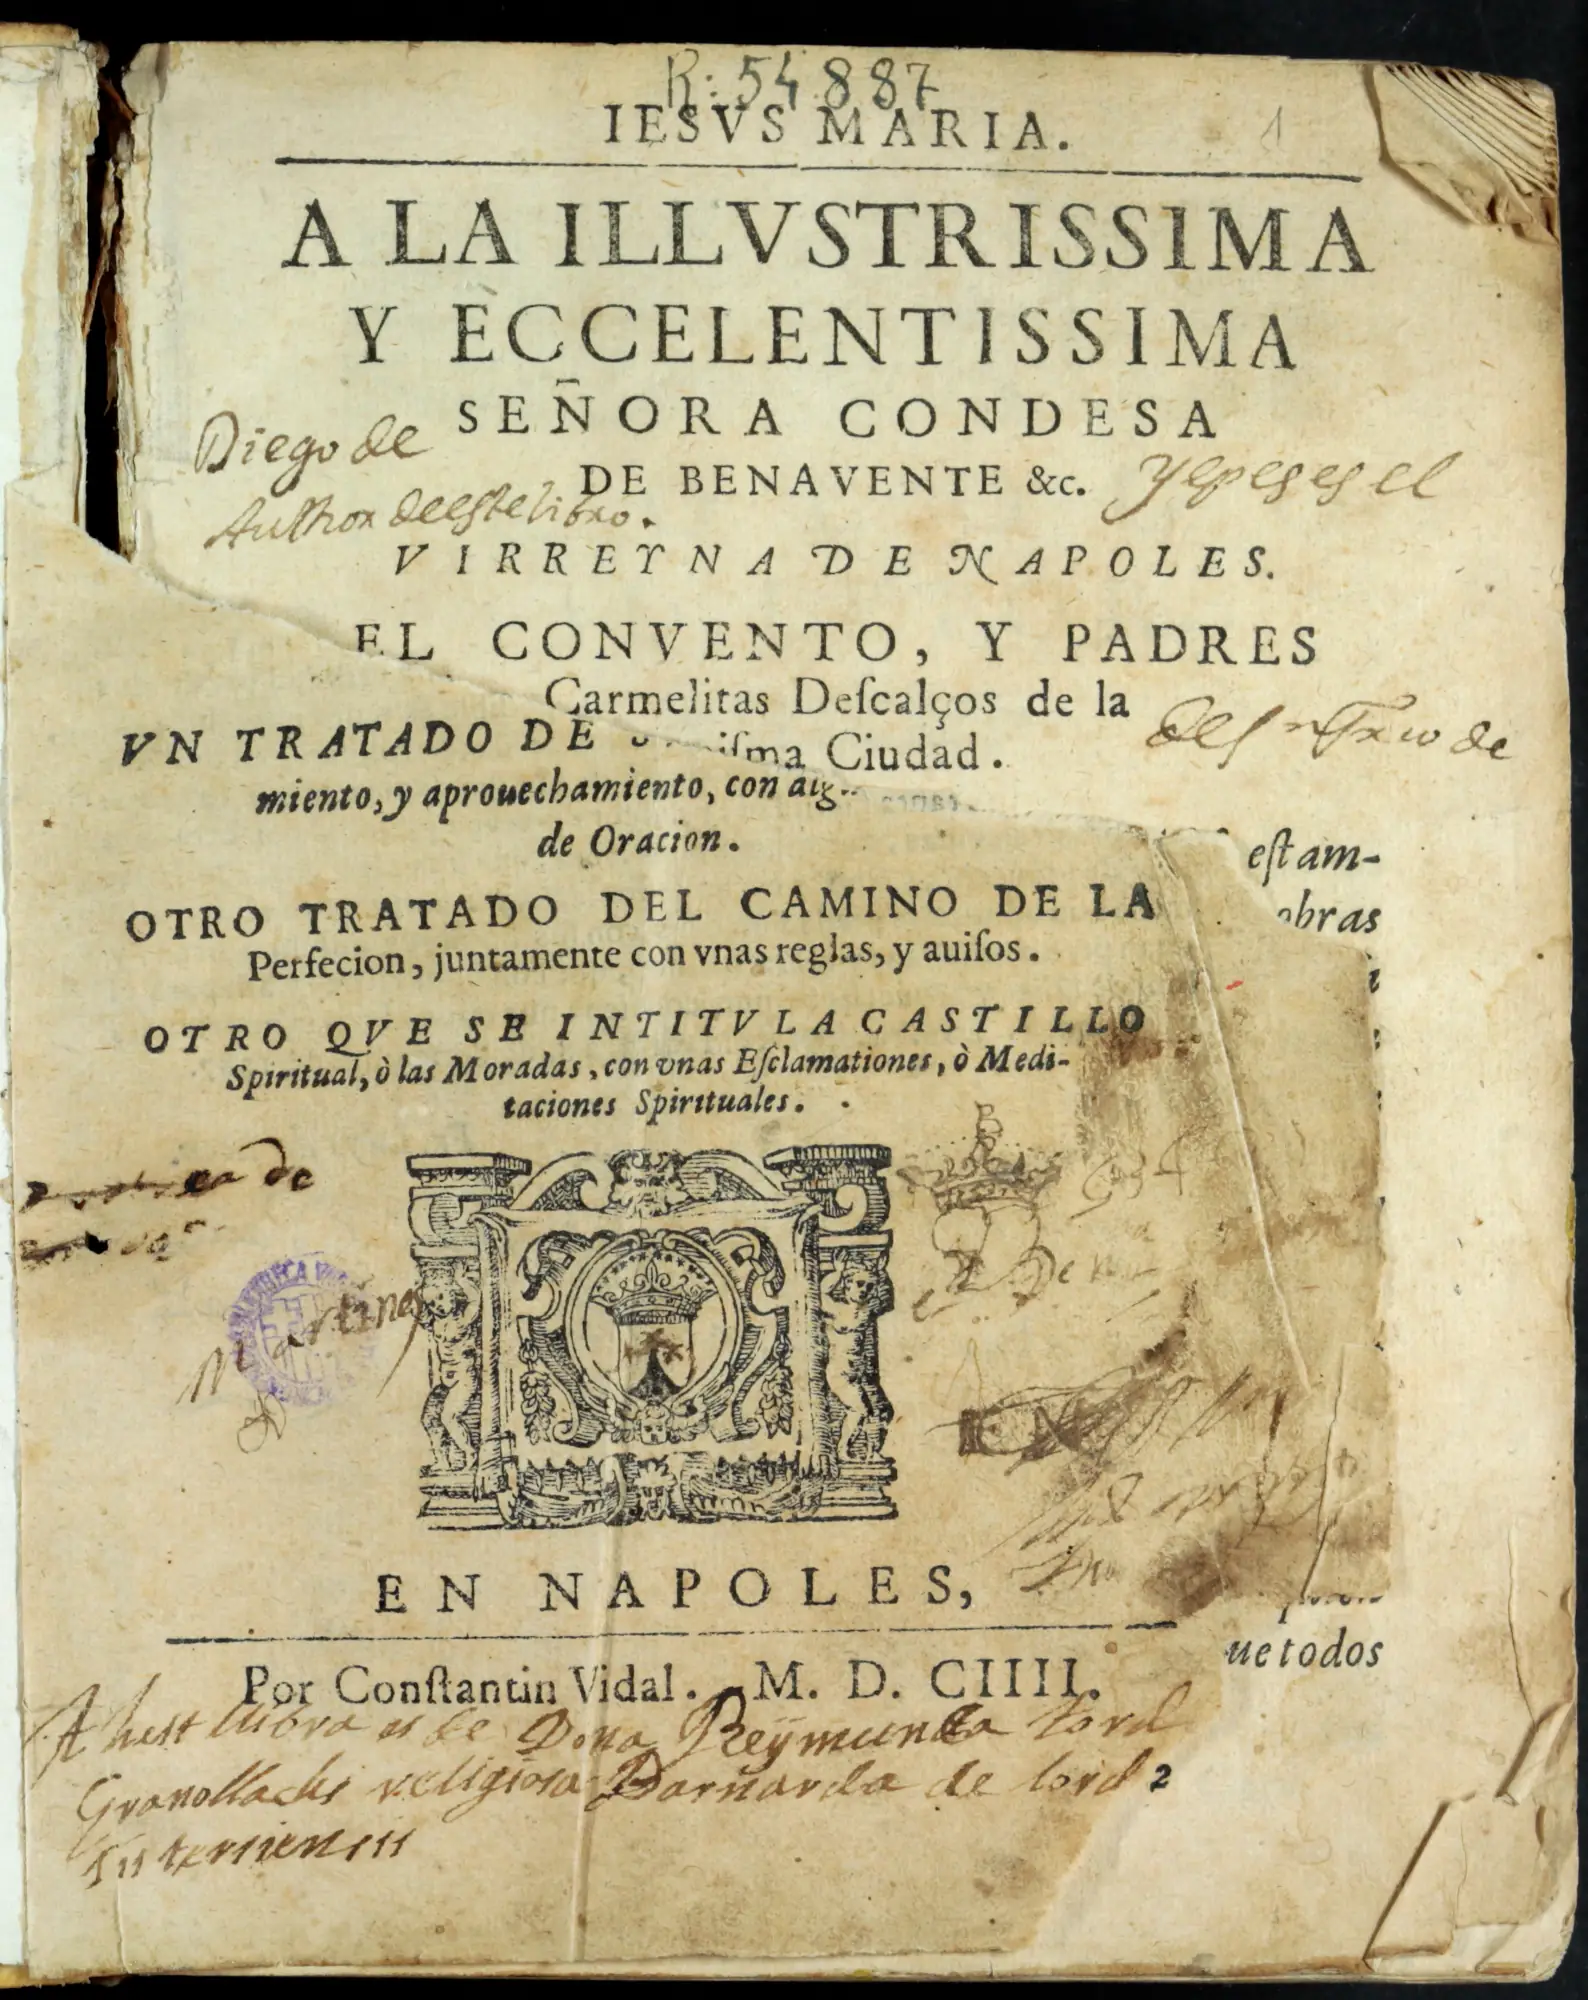 R: 54887
IESVS MARIA.
1
A LA ILLVSTRISSIMA
Y ECCELENTISSIMA
SEÑORA CONDESA
Diego de
DE BENAVENTE &c.
Yepes es el
Author deeste libro.
VIRREYNA DE NAPOLES.
EL CONVENTO, Y PADRES
Carmelitas Deſcalços de la
iſma Ciudad.
de
VN TRATADO DE
miento, y aprouechamiento, con alg
de Oracion.
eſtam-
obras
OTRO TRATADO DEL CAMINO DE LA
Perfecion, juntamente con vnas reglas, y auiſos.
OTRO QVE SE INTITVLA CASTILLO
Spiritual, ò las Moradas, con vnas Eſclamationes, ò Medi-
taciones Spirituales.
de
Martines
EN NAPOLES,
uetodos
Por Conſtantin Vidal. M. D. CIIII.
Ahest llibra es de Dona Reÿmunda lord
religiosa Barnarda de lord
2